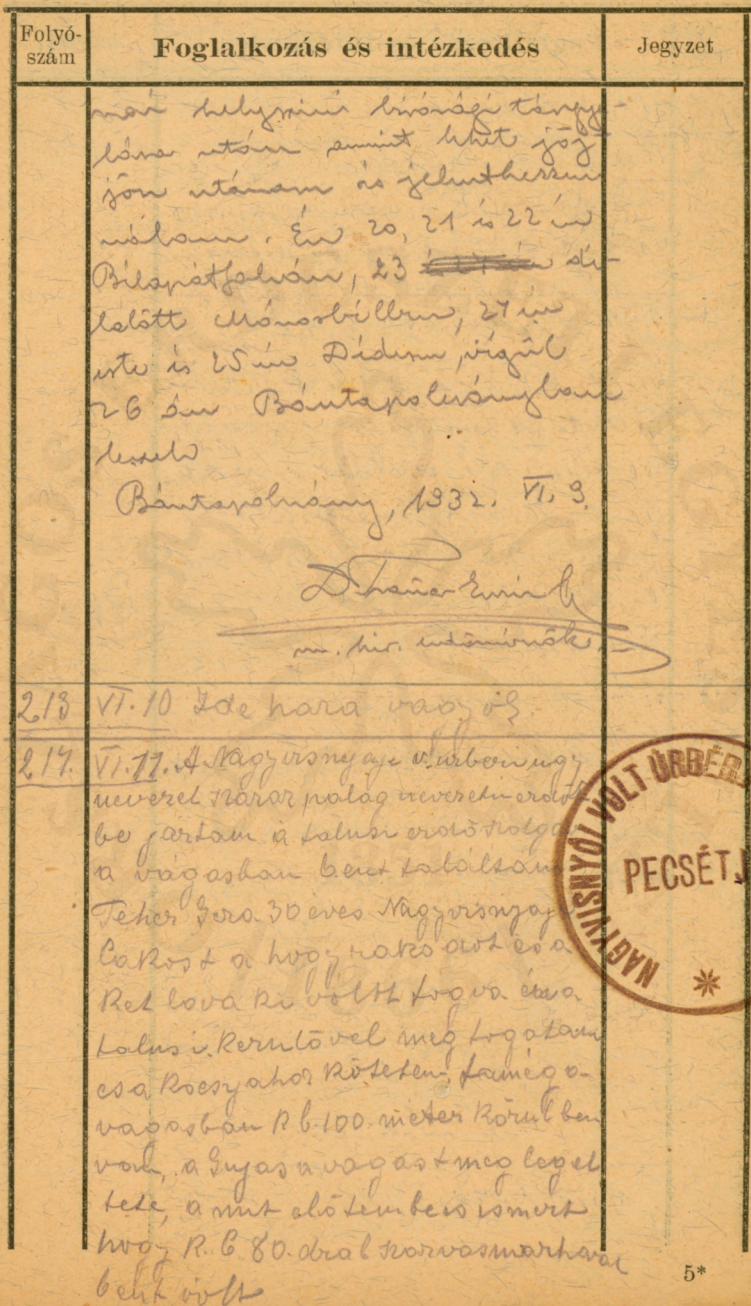 Folyó-
szám
Foglalkozás és intézkedés
Jegyzet
helyszini birósági tárgya-
lása után amint lehet jöj-
jön utánam és jelentkezzen
nálam. Én 20, 21 és 22 én
Bélapátfalván, 23 de-
lelőtt Mónosbélben, 24 én
este és 25 én Dédesen, végül
26 án Bántapolcsányban
leszek
Bántapolcsány, 1932. VI. 9.
m. kir. erdőmérnök
213 VI. 10 Ide hara vagyok
214. VI. 11. A Nagyvisnyaji v. urberi ugy
nevezet szaraz nevezetü erdöt
be jartam a talusi erdöszolga
a vágasban bent találtam
Feher Gera 30 éves Nagyvisnyaji
Lakost a hogy rakodot és a
Ket lova ki voltt fogva én a
talusi Kerulövel meg fogatam
es a Kocsyahoz Kötetem
vagasban R b. 100. meter Körul ben
van, a Gujas a vagast meg legel
tete, a mit elötem be is ismert
hogy R. b 80. drab szarvasmarhaval
bent volt
NAGYVISNYÓI VOLT ÚRBÉR
PECSÉTJ
5*